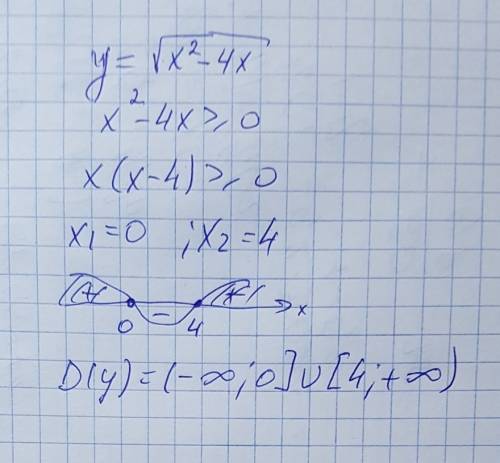 y = √(x² - 4x)
x² - 4x ≥ 0
x(x-4) ≥ 0
x₁ = 0 ; x₂ = 4
+ - + x
0 4
D(y) = (-∞; 0] ∪ [4; +∞)